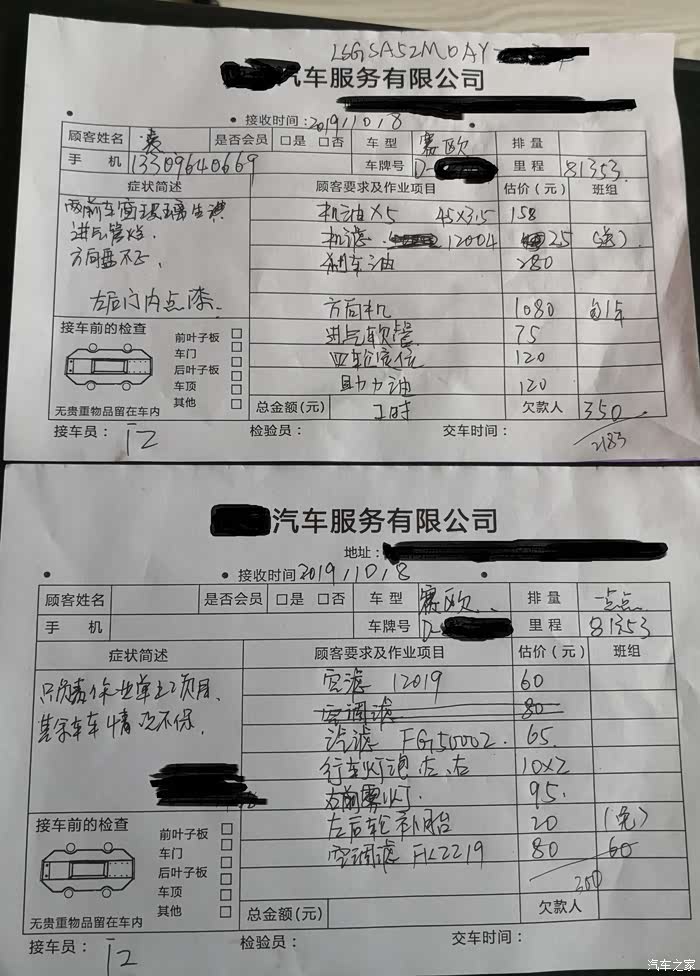 LSGSA52M0AY
汽车服务有限公司
接收时间:2019,10,8
顾客姓名 是否会员 □是 □否 车 型 赛欧 排 量
手 机 13309640669 车牌号 D- 里 程 81353
症状简述 顾客要求及作业项目 估价(元) 班组
两前车窗玻璃生涩 机油×5 45×3.5 158
进气管烂. 机滤 12004 25 (送)
方向盘不正, 刹车油 280
左后门内点漆. 方向机 1080 包1年
进气软管 75
四轮定位 120
助力油 120
接车前的检查
前叶子板 □
车门 □
后叶子板 □
车顶 □
其他 □
无贵重物品留在车内
总金额(元) 工时 欠款人 350
2183
接车员: 检验员: 交车时间:
汽车服务有限公司
地址:
接收时间 2019,10,8
顾客姓名 是否会员 □是 □否 车 型 赛欧 排 量
手 机 车牌号 D- 里 程 81353
症状简述 顾客要求及作业项目 估价(元) 班组
空滤 12019 60
空调滤 80
汽滤 FG50002. 65.
行车灯泡左、右 10×2
右前雾灯 95.
左后轮补胎 20 (免)
空调滤 FK2219 80 60
350
接车前的检查
前叶子板 □
车门 □
后叶子板 □
车顶 □
其他 □
无贵重物品留在车内
总金额(元) 欠款人
接车员: 检验员: 交车时间:
汽车之家